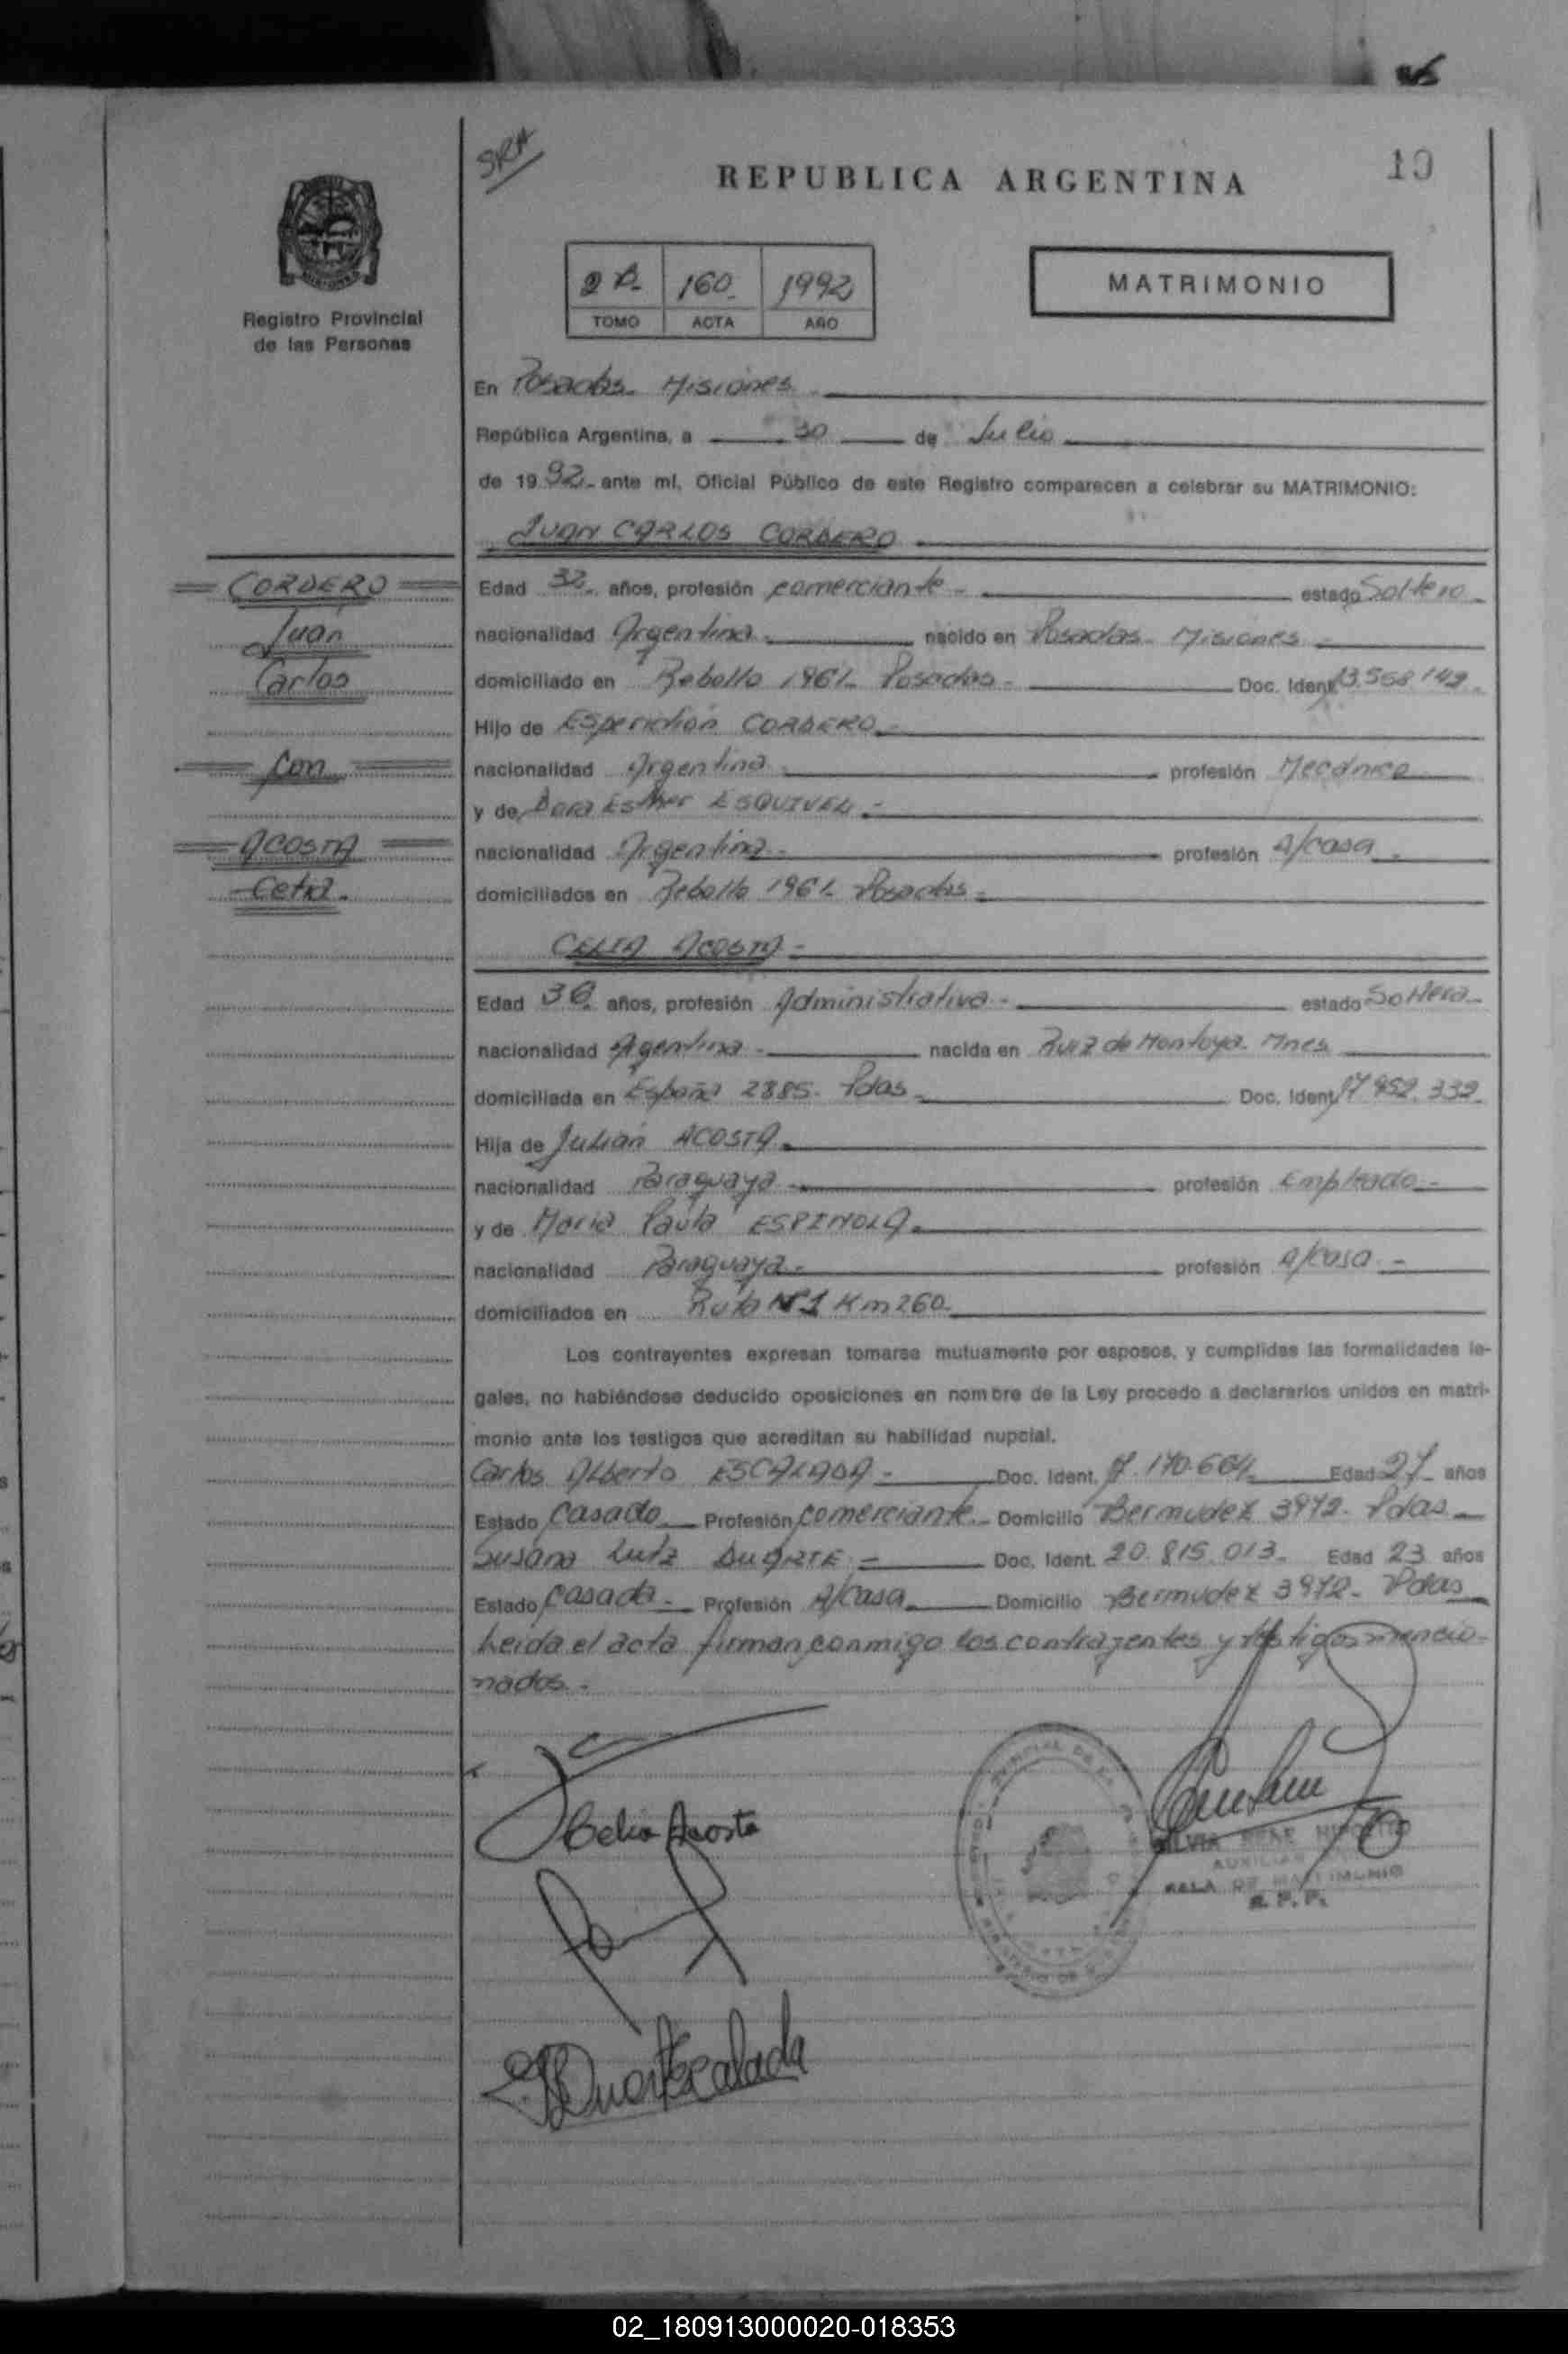 SRA
REPUBLICA ARGENTINA
19
Registro Provincial
de las Personas
160 1992
TOMO ACTA AÑO
MATRIMONIO
En Posadas Misiones
República Argentina, a 30 de Julio
de 1992 ante mí, Oficial Público de este Registro comparecen a celebrar su MATRIMONIO:
JUAN CARLOS CORDERO
CORDERO
Juan
Carlos
Con
ACOSTA
Celia
Edad 32 años, profesión comerciante estado Soltero
nacionalidad Argentina nacido en Posadas Misiones
domiciliado en Rebollo Posadas Doc. Ident.
Hijo de CORDERO
nacionalidad Argentina profesión Mecánico
y de Dora Esther ESQUIVEL
nacionalidad Argentina profesión A/casa
domiciliados en Rebollo Posadas
CELIA ACOSTA
Edad años, profesión Administrativa estado Soltera
nacionalidad Argentina nacida en Ruiz de Montoya Mnes
domiciliada en España 2885 Pdas Doc. Ident.
Hija de Julián ACOSTA
nacionalidad Paraguaya profesión Empleado
y de María Paula ESPINOLA
nacionalidad Paraguaya profesión A/casa
domiciliados en Ruta Nº1 Km 260
Los contrayentes expresan tomarse mutuamente por esposos, y cumplidas las formalidades le-
gales, no habiéndose deducido oposiciones en nombre de la Ley procedo a declararlos unidos en matri-
monio ante los testigos que acreditan su habilidad nupcial.
Carlos Alberto ESCALADA Doc. Ident. Edad 27 años
Estado Casado Profesión comerciante Domicilio Bermudez 3972 Pdas
Susana DUARTE Doc. Ident. 20.815.013 Edad 23 años
Estado casada Profesión A/casa Domicilio Bermudez 3972 Pdas
Leída el acta firman conmigo los contrayentes y testigos mencio-
nados.
Celia Acosta
SILVIA
SALA DE MATRIMONIO
R. P. P.
02_180913000020-018353